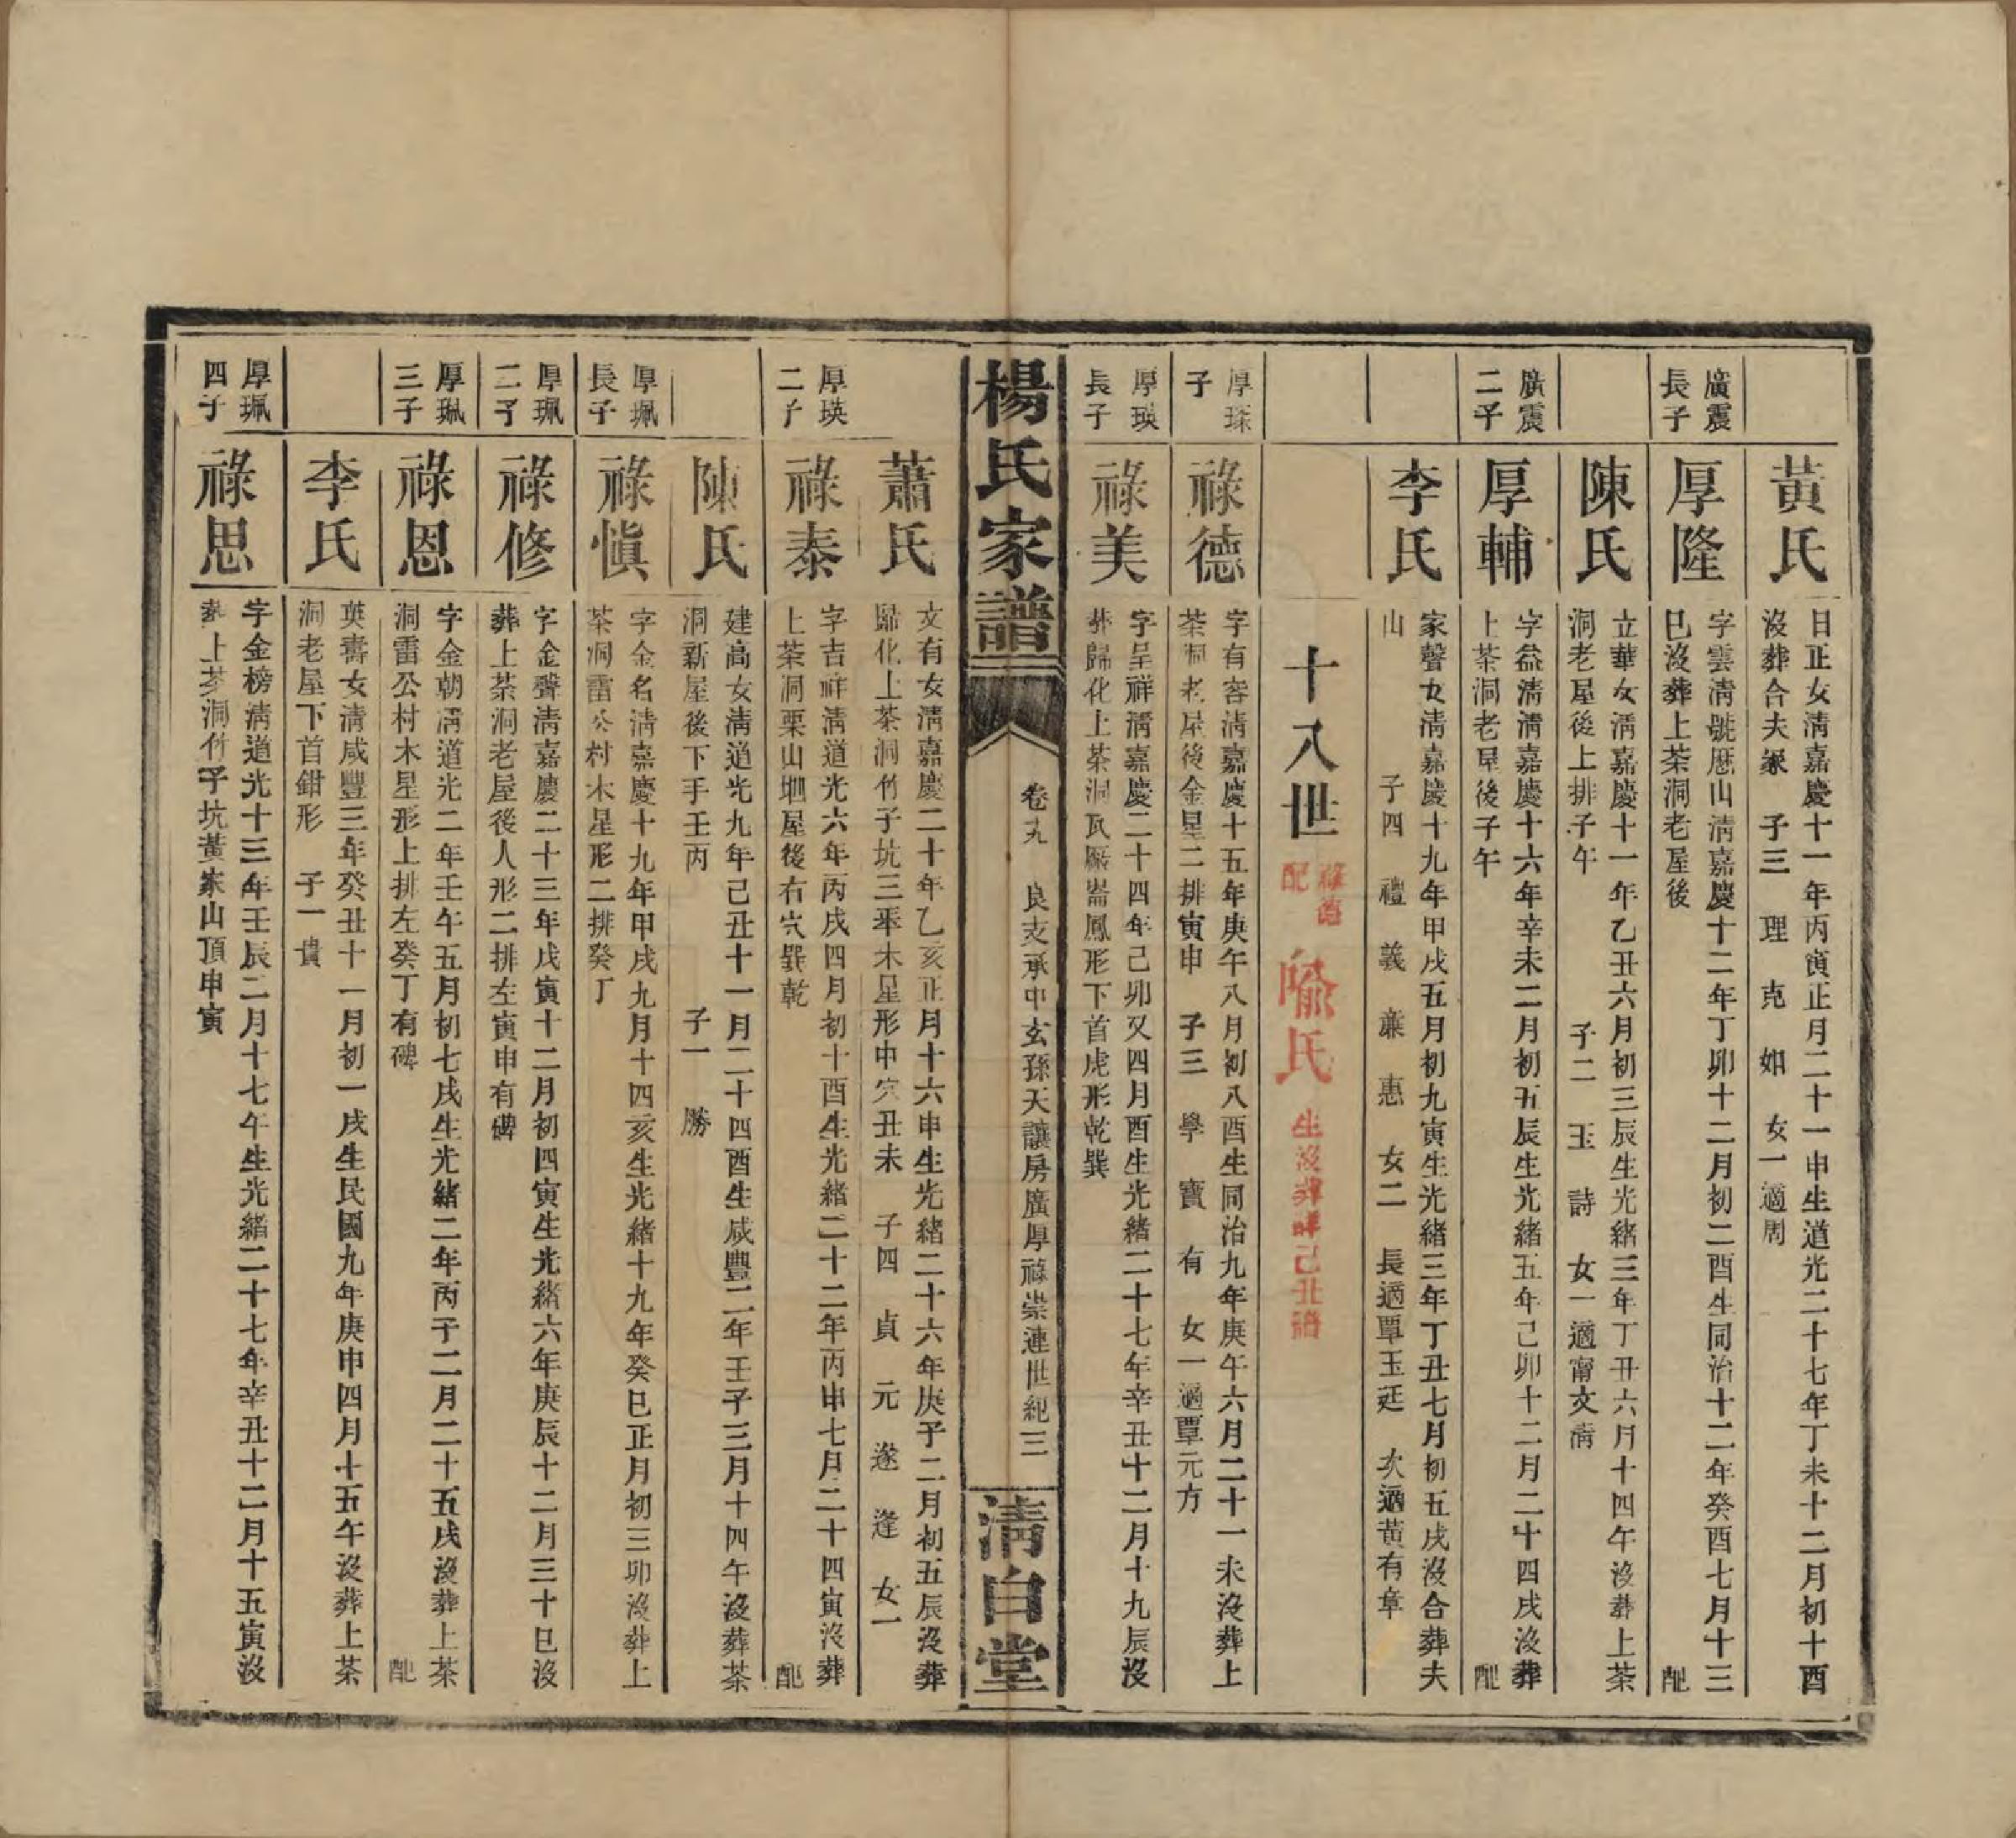 黃氏
日正女淸嘉慶十一年丙寅正月二十一申生道光二十七年丁未十二月初十酉
沒葬合夫冢　子三　理　克　如　女一適周
廣震
長子
厚隆
字雲淸號厯山淸嘉慶十二年丁卯十二月初二酉生同治十二年癸酉七月十三
巳沒葬上茶洞老屋後　配
陳氏
立華女淸嘉慶十一年乙丑六月初三辰生光緒三年丁丑六月十四午沒葬上茶
洞老屋後上排子午　子二　玉　詩　女一適甯文淸
廣震
二子
厚輔
字益淸淸嘉慶十六年辛未二月初五辰生光緒五年己卯十二月二十四戌沒葬
上茶洞老屋後子午　配
李氏
家聲女淸嘉慶十九年甲戌五月初九寅生光緒三年丁丑七月初五戌沒合葬夫
山　子四　禮　義　廉　惠　女二　長適覃玉廷　次適黃有章
十八世
祿德
配
喩氏
生沒葬詳己丑譜
厚琛
子
祿德
字有容淸嘉慶十五年庚午八月初八酉生同治九年庚午六月二十一未沒葬上
茶洞老屋後金星二排寅申　子三　學　寶　有　女一適覃元方
厚瑛
長子
祿美
字呈祥淸嘉慶二十四年己卯又四月酉生光緒二十七年辛丑十二月十九辰沒
葬歸化上茶洞瓦廠崙鳳形下首虎形乾巽
楊氏家譜
卷九　良支承中玄孫天讓房廣厚祿崇連世紀三
淸白堂
蕭氏
文有女淸嘉慶二十年乙亥正月十六申生光緒二十六年庚子二月初五辰沒葬
歸化上茶洞竹子坑三渠木星形中穴丑未　子四　貞　元　遂　逢　女一
厚瑛
二子
祿泰
字吉祥淸道光六年丙戌四月初十酉生光緒二十二年丙申七月二十四寅沒葬
上茶洞栗山地屋後右穴巽乾　配
陳氏
建高女淸道光九年己丑十一月二十四酉生咸豐二年壬子三月十四午沒葬茶
洞新屋後下手壬丙　子一　勝
厚珮
長子
祿愼
字金名淸嘉慶十九年甲戌九月十四亥生光緒十九年癸巳正月初三卯沒葬上
茶洞雷公村木星形二排癸丁
厚珮
二子
祿修
字金聲淸嘉慶二十三年戊寅十二月初四寅生光緒六年庚辰十二月三十巳沒
葬上茶洞老屋後人形二排左寅申有碑
厚珮
三子
祿恩
字金朝淸道光二年壬午五月初七戌生光緒二年丙子二月二十五戌沒葬上茶
洞雷公村木星形上排左癸丁有碑　配
李氏
英壽女淸咸豐三年癸丑十一月初一戌生民國九年庚申四月十五午沒葬上茶
洞老屋下首鉗形　子一貴
厚珮
四子
祿思
字金榜淸道光十三年壬辰二月十七午生光緒二十七年辛丑十二月十五寅沒
葬上茶洞竹子坑黃家山頂申寅